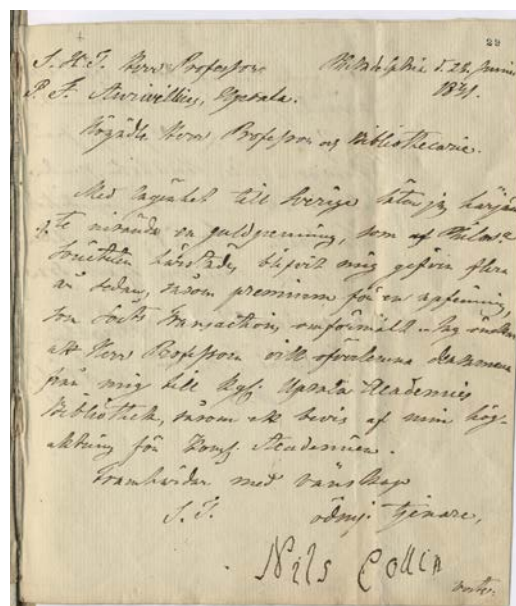 29
S. H. T. Herr Professor Philadelphia d. 28. Junii
P. F. Aurivillius, Upsala. 1831.
Högädle Herr Professor og Bibliothecarie.
Med lägenhet till Sverige låter jag härjem
te nisända en guldpenning, som af Philos.
Societeten härstädes blifvit mig gifven flera
år sedan, såsom premium för en upfinning,
som Soc:ts Transactions omförmält. Jag önskar
att Herr Professorn vill öfverlemna densamma
från mig till Kgl: Upsala Academies
Bibliothek, såsom ett bevis af min hög-
aktning för Kongl. Academien.
Framhärdar med vänskap
S. T. ödmj: tjenare,
Nils Collin